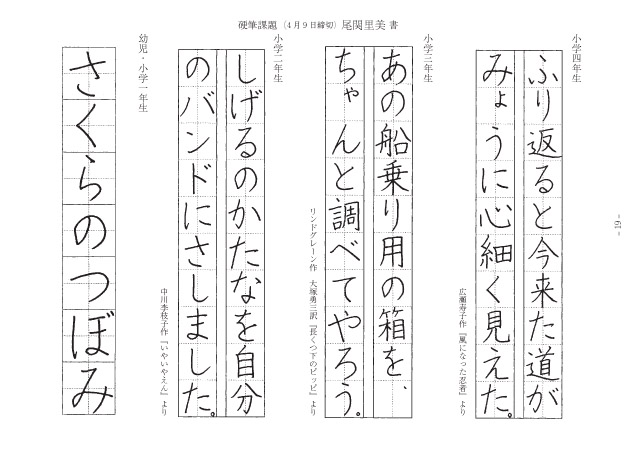 硬筆課題（4月9日締切）尾関里美 書
小学四年生
ふり返ると今来た道が
みょうに心細く見えた。
広瀬寿子作『風になった忍者』より
小学三年生
あの船乗り用の箱を、
ちゃんと調べてやろう。
リンドグレーン作 大塚勇三訳『長くつ下のピッピ』より
小学二年生
しげるのかたなを自分
のバンドにさしました。
中川李枝子作『いやいやえん』より
幼児・小学一年生
さくらのつぼみ
- 19 -